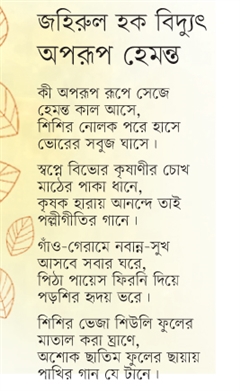 জহিরুল হক বিদ্যুৎ
অপরূপ হেমন্ত
কী অপরূপ রূপে সেজে
হেমন্ত কাল আসে,
শিশির নোলক পরে হাসে
ভোরের সবুজ ঘাসে।
স্বপ্নে বিভোর কৃষাণীর চোখ
মাঠের পাকা ধানে,
কৃষক হারায় আনন্দে তাই
পল্লীগীতির গানে।
গাঁও-গেরামে নবান্ন-সুখ
আসবে সবার ঘরে,
পিঠা পায়েস ফিরনি দিয়ে
পড়শির হৃদয় ভরে।
শিশির ভেজা শিউলি ফুলের
মাতাল করা ঘ্রাণে,
অশোক ছাতিম ফুলের ছায়ায়
পাখির গান যে টানে।